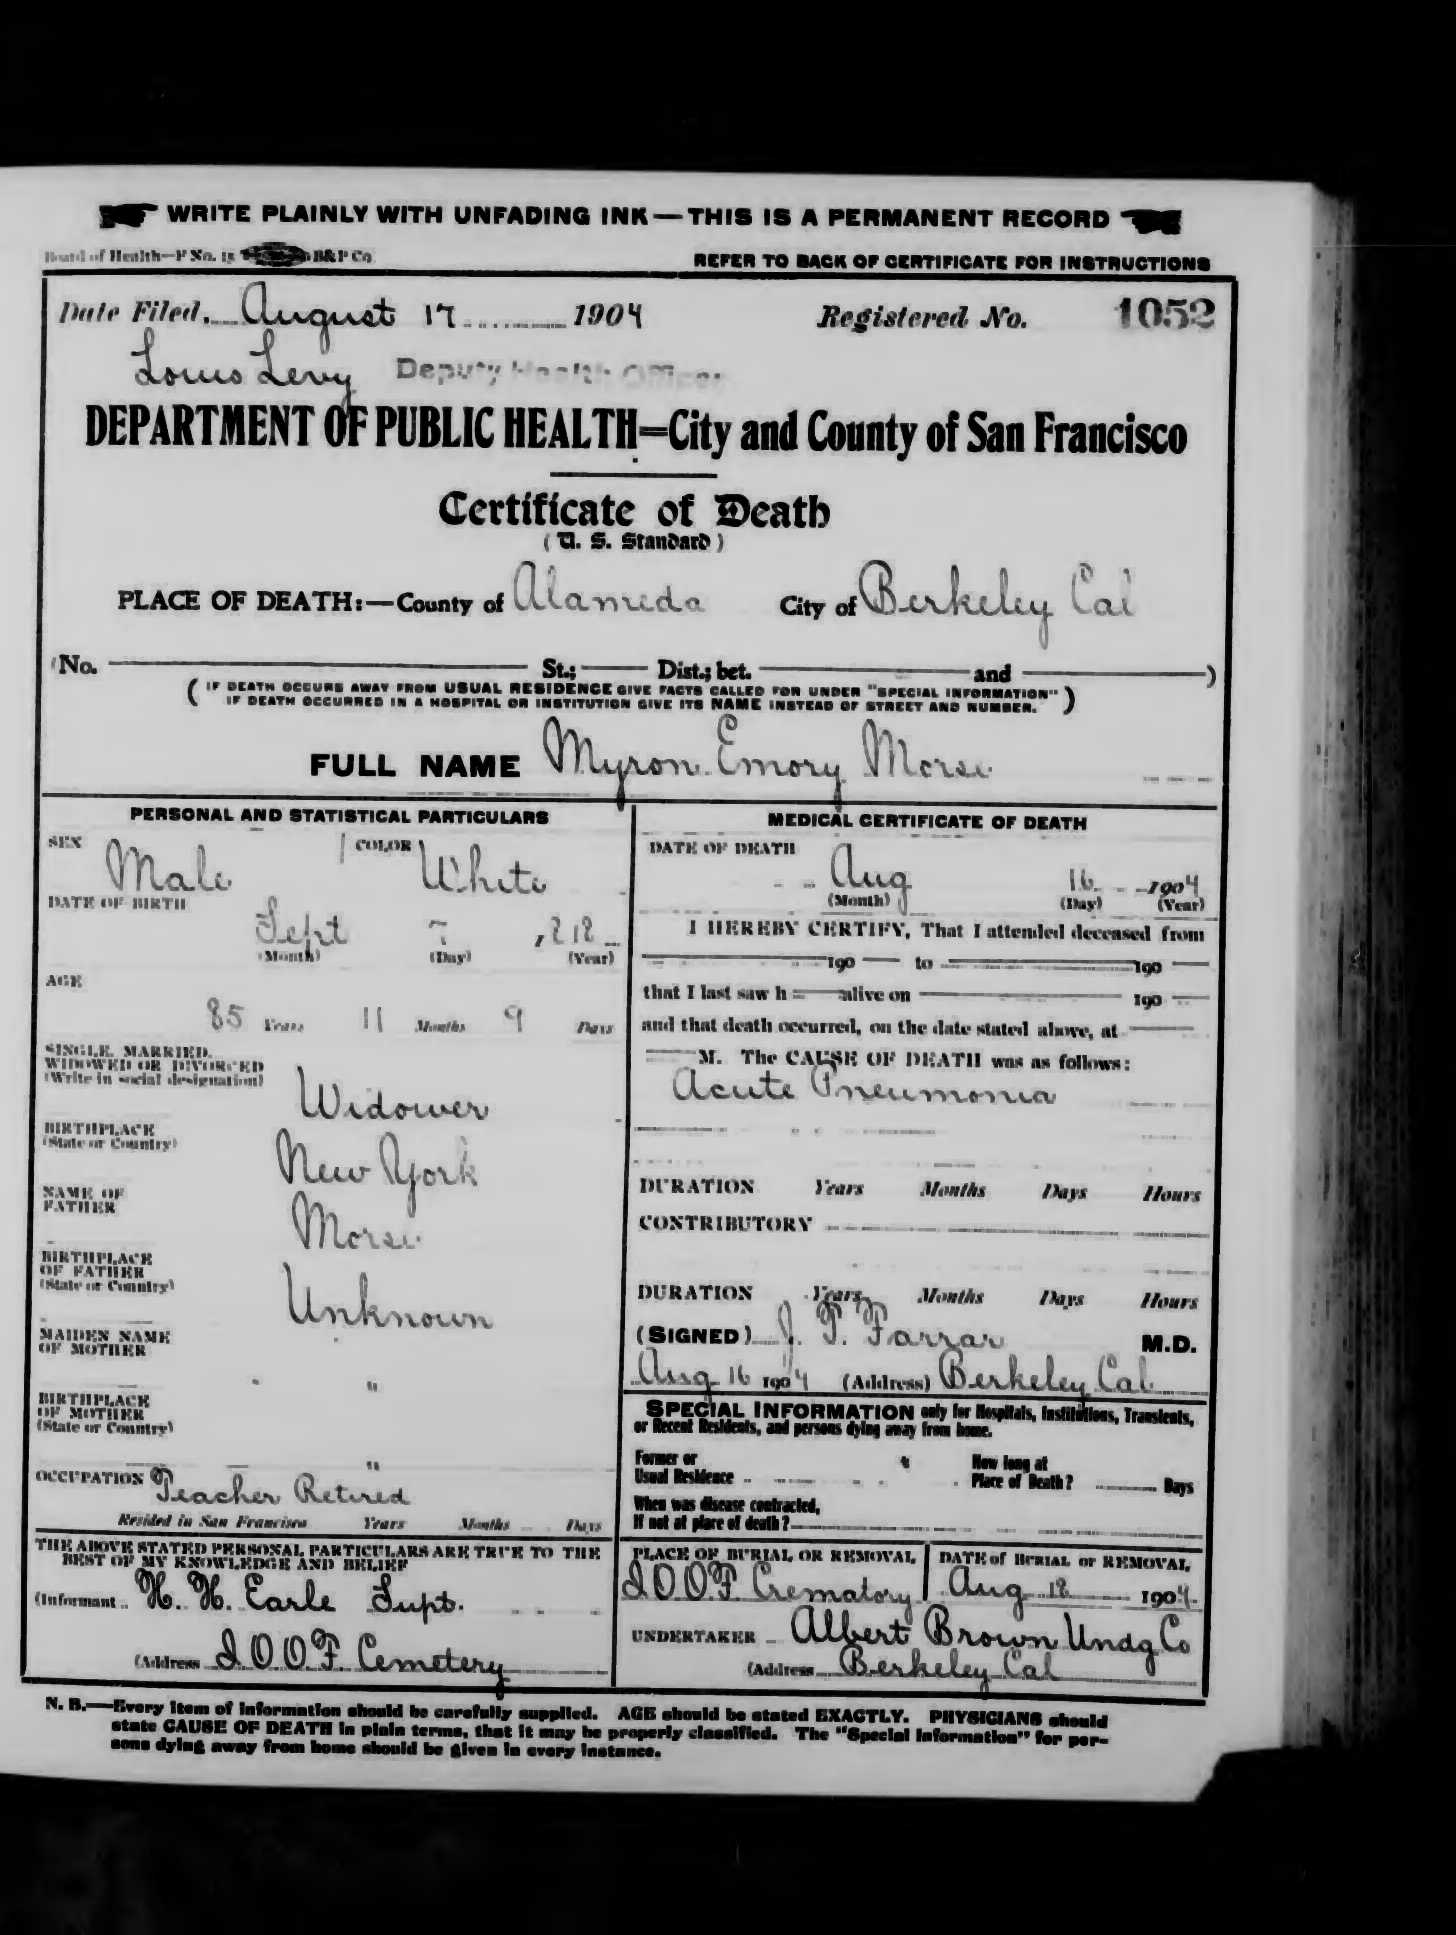 WRITE PLAINLY WITH UNFADING INK—THIS IS A PERMANENT RECORD
Board of Health—F No. 15 B&P Co
REFER TO BACK OF CERTIFICATE FOR INSTRUCTIONS
Date Filed, August 17 1904 Registered No. 1052
Louis Levy Deputy Health Officer
DEPARTMENT OF PUBLIC HEALTH=City and County of San Francisco
Certificate of Death
(U. S. Standard)
PLACE OF DEATH:—County of Alameda City of Berkeley Cal
(No. St.; Dist.; bet. and )
(IF DEATH OCCURS AWAY FROM USUAL RESIDENCE GIVE FACTS CALLED FOR UNDER "SPECIAL INFORMATION"
IF DEATH OCCURRED IN A HOSPITAL OR INSTITUTION GIVE ITS NAME INSTEAD OF STREET AND NUMBER.)
FULL NAME Myron Emory Morse
PERSONAL AND STATISTICAL PARTICULARS
SEX Male COLOR White
DATE OF BIRTH
Sept 7 ,818
(Month) (Day) (Year)
AGE
85 Years 11 Months 9 Days
SINGLE, MARRIED,
WIDOWED OR DIVORCED
(Write in social designation)
Widower
BIRTHPLACE
(State or Country)
New York
NAME OF
FATHER
Morse
BIRTHPLACE
OF FATHER
(State or Country)
Unknown
MAIDEN NAME
OF MOTHER
"
BIRTHPLACE
OF MOTHER
(State or Country)
"
OCCUPATION Teacher Retired
Resided in San Francisco Years Months Days
THE ABOVE STATED PERSONAL PARTICULARS ARE TRUE TO THE
BEST OF MY KNOWLEDGE AND BELIEF
(Informant H. H. Earle Supt.
(Address I O O F Cemetery
MEDICAL CERTIFICATE OF DEATH
DATE OF DEATH
Aug 16 1904
(Month) (Day) (Year)
I HEREBY CERTIFY, That I attended deceased from
190 to 190
that I last saw h alive on 190
and that death occurred, on the date stated above, at
M. The CAUSE OF DEATH was as follows:
Acute Pneumonia
DURATION Years Months Days Hours
CONTRIBUTORY
DURATION Years Months Days Hours
(SIGNED) J. T. Farrar M.D.
Aug 16 1904 (Address) Berkeley Cal
SPECIAL INFORMATION only for Hospitals, Institutions, Transients,
or Recent Residents, and persons dying away from home.
Former or
Usual Residence
How long at
Place of Death? Days
When was disease contracted,
If not at place of death?
PLACE OF BURIAL OR REMOVAL
I O O F Crematory
DATE of BURIAL or REMOVAL
Aug 18 1904
UNDERTAKER Albert Brown Undg Co
(Address Berkeley Cal
N. B.—Every item of information should be carefully supplied. AGE should be stated EXACTLY. PHYSICIANS should
state CAUSE OF DEATH in plain terms, that it may be properly classified. The "Special Information" for per-
sons dying away from home should be given in every instance.